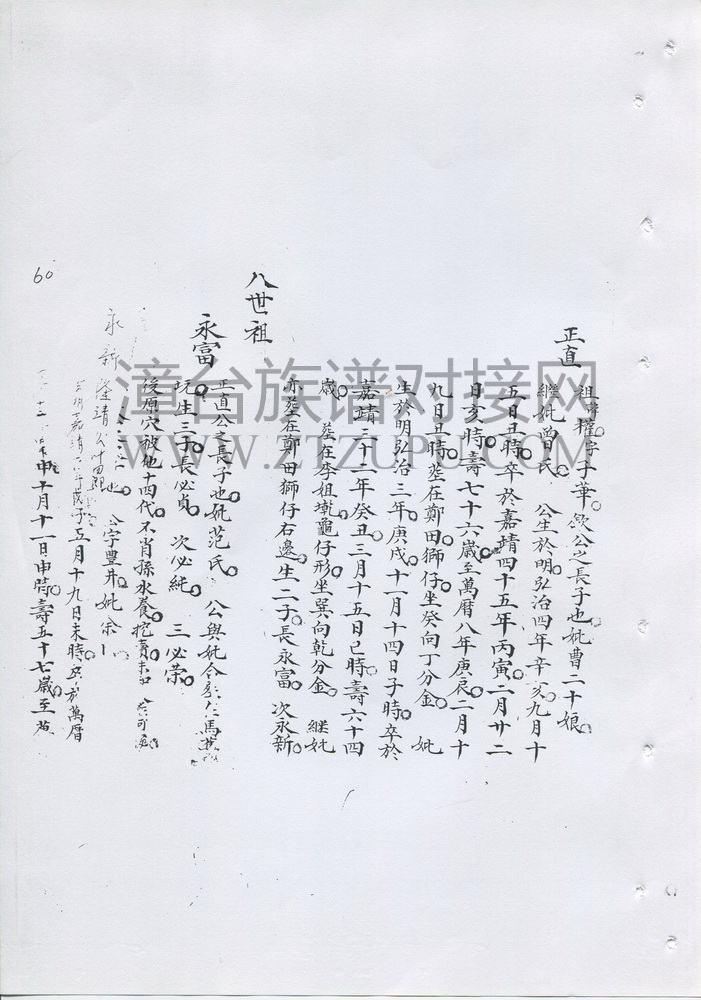 正直
祖諱權字子華欽公之長子也妣曹二十娘
繼妣曾氏 公生於明弘治四年辛亥九月十
五日丑時卒於嘉靖四十五年丙寅二月廿二
日亥時壽七十六歲至萬厝八年庚辰二月十
九日丑時塟在鄭田獅仔坐癸向丁分金 妣
生於明弘治三年庚戌十一月十四日子時卒於
嘉靖三十二年癸丑三月十五日巳時壽六十四
歲 塟在李姐墘龜仔形坐巽向乾分金 継妣
亦塟在鄭田獅仔右邊生二子長永富次永新
八世祖
永富
正直公之長子也妣范氏 公與妣合 馬
坑生三子長必貞 次必純 三必荣
後原穴被他十四代不肖孫永養挖賣
永新
字豊井 妣
嘉靖 五月十九日未時 萬厝
申十月十一日申時壽五十七歲至
60
漳台族谱对接网
WWW.ZTZUPU.COM